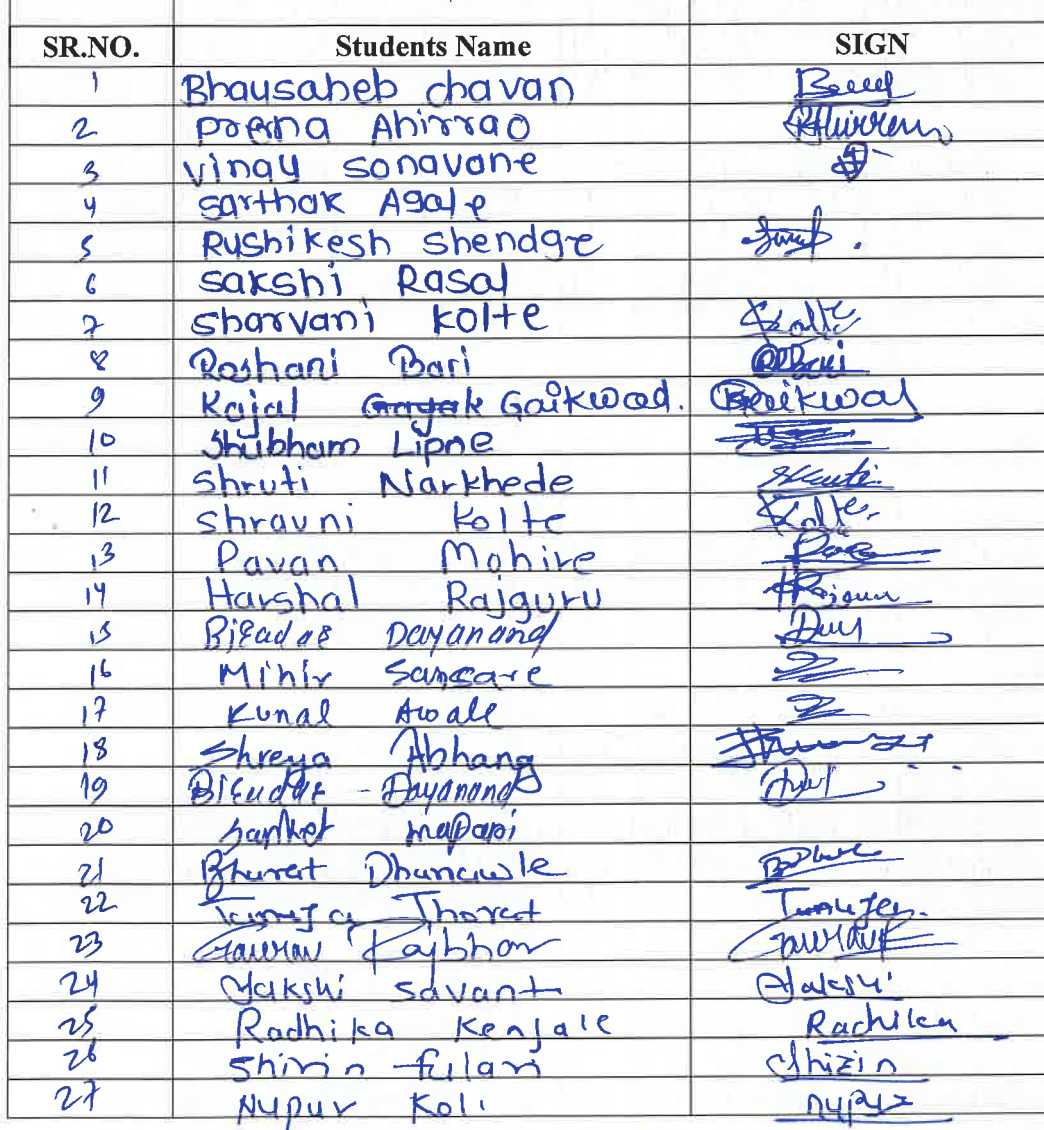 SR.NO. Students Name SIGN
1 Bhausaheb chavan
2 Prerna Ahirrao
3 vinay sonavane
4 sarthak Agale
5 Rushikesh shendge
6 sakshi Rasal
7 sharvani kolte Kolte
8 Roshani Bari RBari
9 Kajal Gaikwad. Gaikwad
10 Shubham Lipne
11 Shruti Narkhede Shruti
12 Shravni Kolte Kolte
13 Pavan Mohire
14 Harshal Rajguru
15 Biradar Dayanand
16 Mihir
17 Kunal Awale
18 Shreya Abhang
19 Biradar - Dayanand
20 Sanket
21 Bharat Dhanawle
22 Tanuja Thorat Tanuja
23 Gaurav Rajbhar Gaurav
24 Yakshi Savant Yakshi
25 Radhika Kenjale Radhika
26 Shirin fulari Shirin
27 Nupur Koli nupur